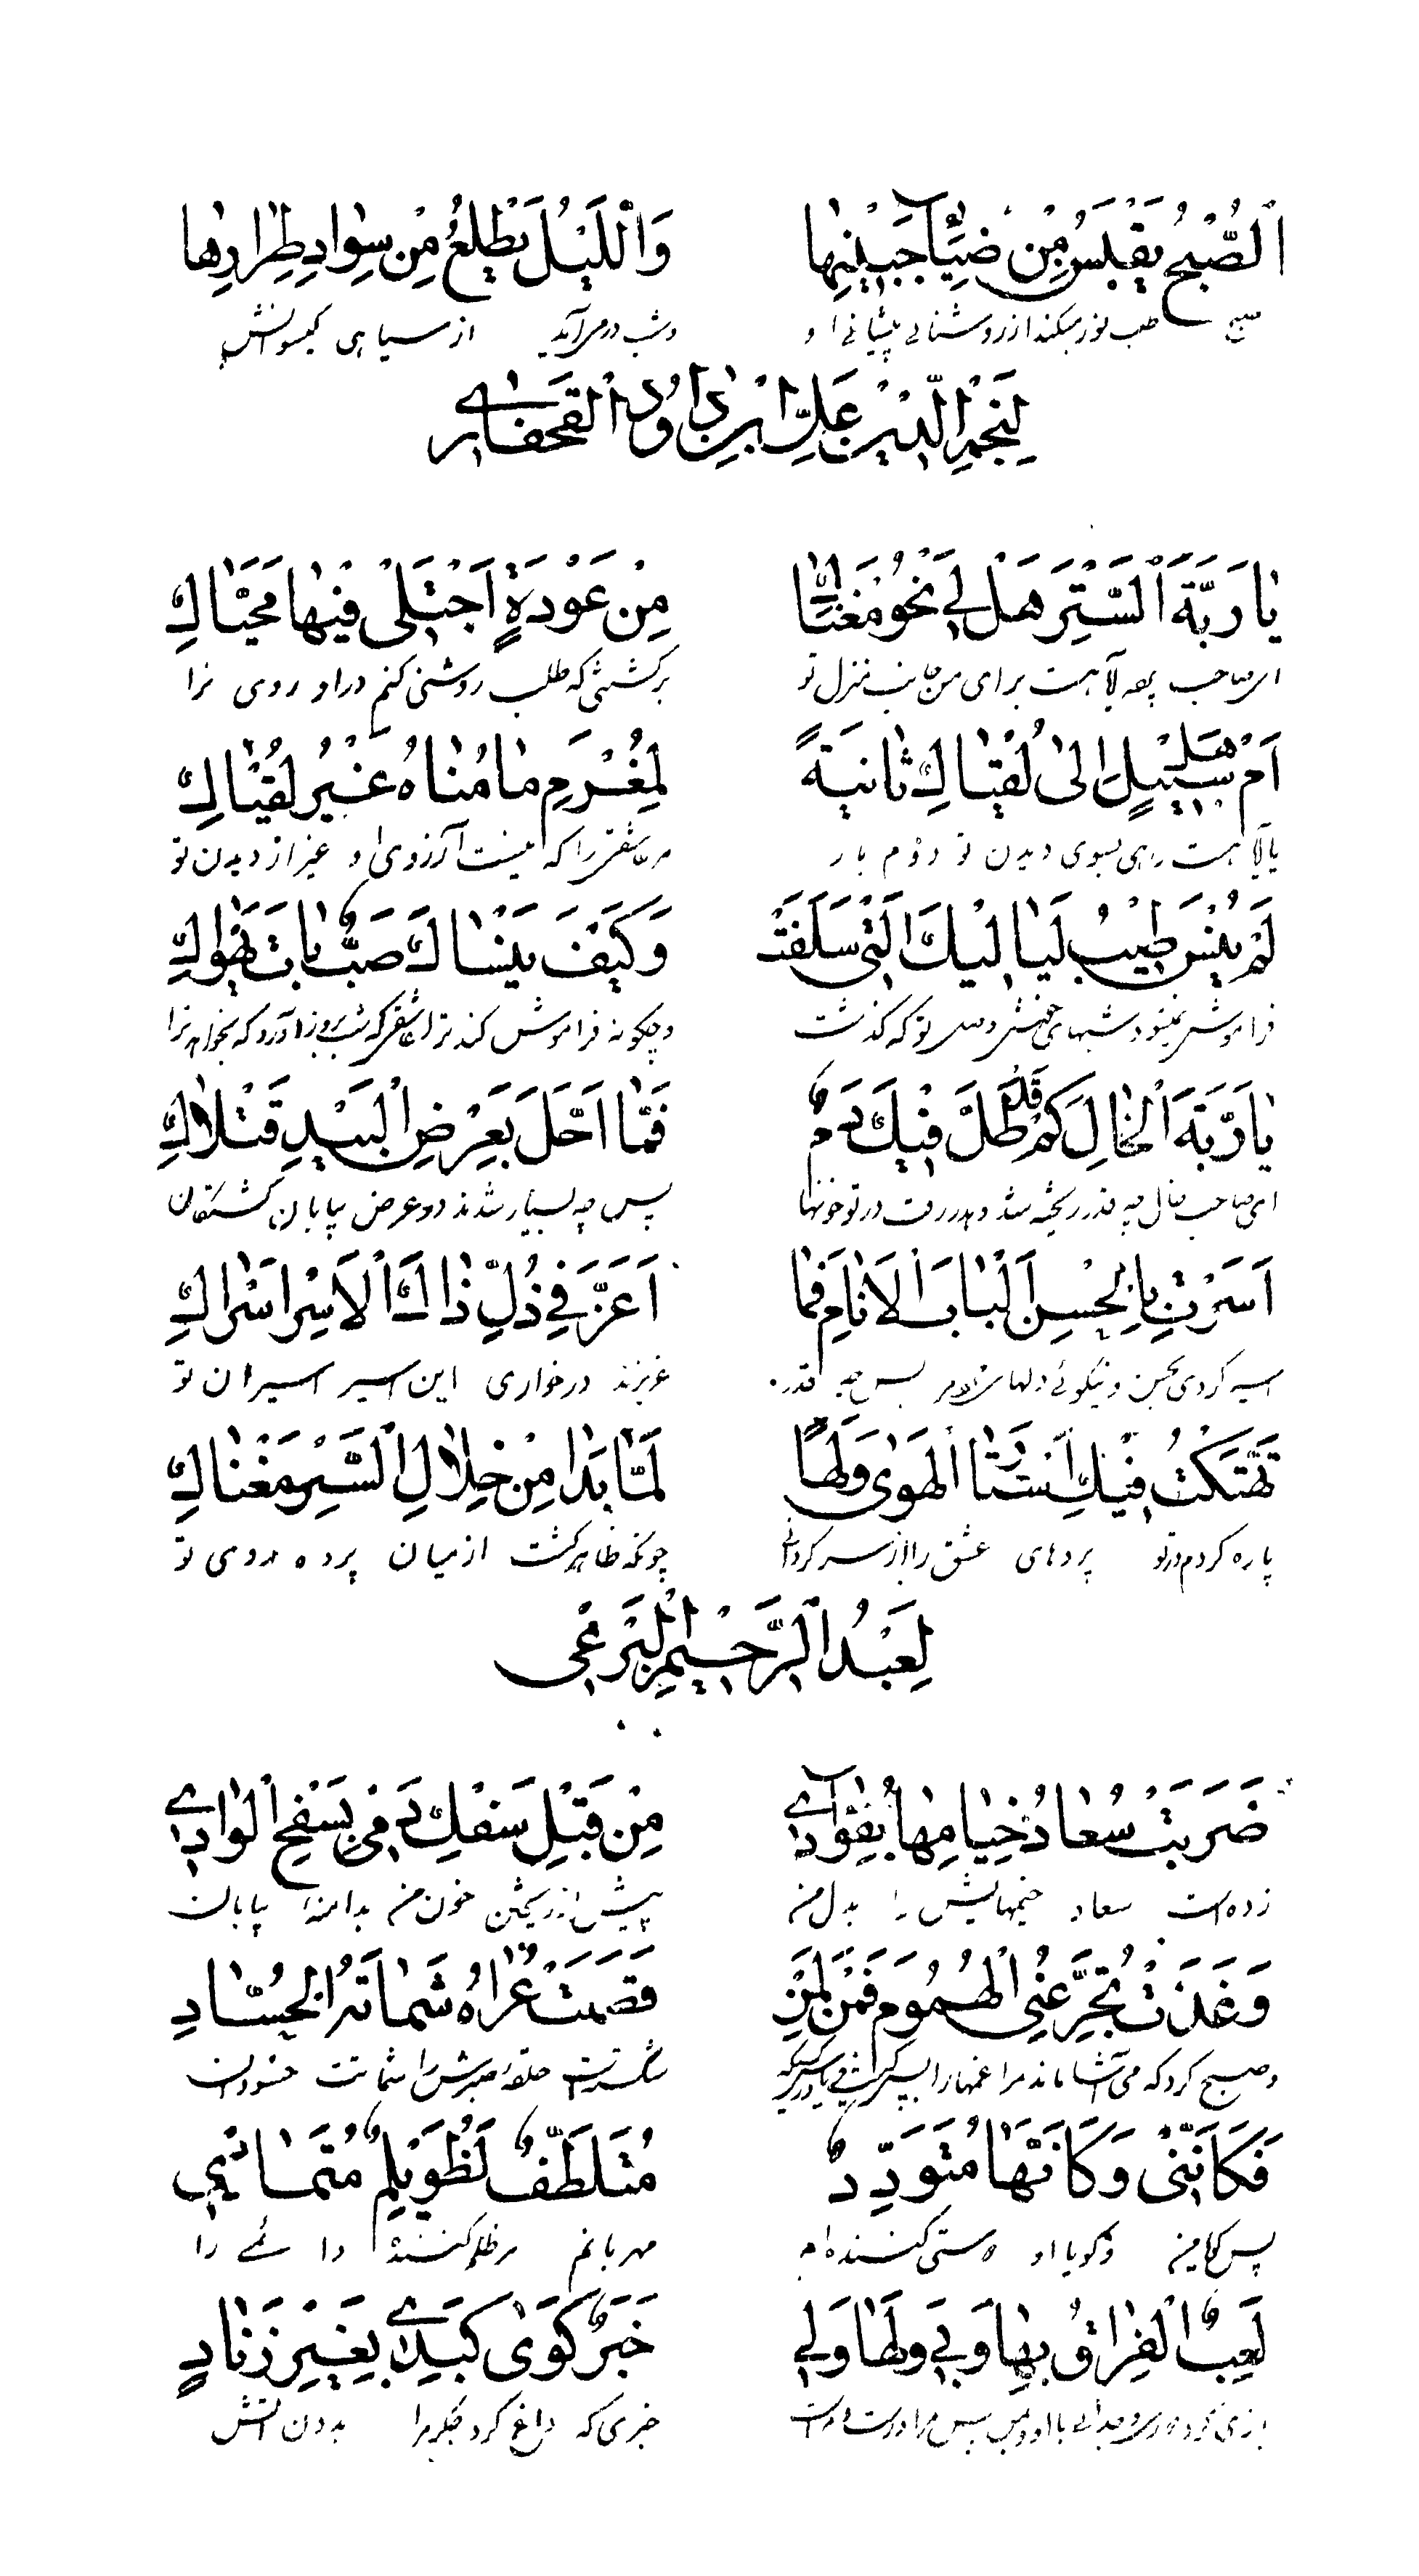 اَلصُّبْحُ يَقْبَسُ مِنْ ضِيَاءِ جَبِيْنِهَا وَاللَّيْلُ يَطْلَعُ مِنْ سِوَادِ طِرَارِهَا
صبح طلب نور میکند از روشنائی پیشانی او و شب درمی‌آید از سیاهی گیسوانش
لِنَجْمِ الدِّيْنِ عَلِيِّ ابْنِ دَاوُدَ الْقَحْفَازِيِّ
يَا رَبَّةَ السِّتْرِ هَلْ لِي نَحْوَ مَغْنَاكِ مِنْ عَوْدَةٍ اَجْتَلِي فِيْهَا مُحَيَّاكِ
ای صاحب پرده آیا هست برای من جانب منزل تو برگشتنی که طلب روشنی کنم در او روی ترا
اَمْ هَلْ سَبِيْلٌ اِلَى لُقْيَاكِ ثَانِيَةً لِمُغْرَمٍ مَا مُنَاهُ غَيْرُ لُقْيَاكِ
یا آیا هست رهی بسوی دیدن تو دوم بار مر عاشقی را که نیست آرزوی او غیر از دیدن تو
لَمْ يُنْسَ طِيْبُ لَيَالِيْكَ الَّتِي سَلَفَتْ وَكَيْفَ يَنْسَاكَ صَبٌّ بَاتَ يَهْوَاكِ
فراموش نمیشود شبهای تو که گذشت و چگونه فراموش کند ترا عاشقی که شب بروز آورد که بخواهد ترا
يَا رَبَّةَ الْخَالِ كَمْ قَدْ طُلَّ فِيْكَ دَمٌ فَمَا اَحَلَّ بِعَرْضِ الْبِيْدِ قَتْلَاكِ
ای صاحب خال چه قدر ریخته شد و هدر رفت در تو خونها پس چه بسیار شدند در عرض بیابان کشتگان
اَسَرْتِ بِالْحُسْنِ اَلْبَابَ الْاَنَامِ فَمَا اَعَزَّ فِي ذُلِّ ذَاكَ الْاَسْرِ اَسْرَاكِ
اسیر کردی بحسن و نیکوئی دلها پس چه قدر عزیزند در خواری این اسیر اسیران تو
تَهَتَّكَتْ فِيْكِ اَسْتَارُ الْهَوَى وَلَهًا لَمَّا بَدَا مِنْ خِلَالِ السِّتْرِ مَغْنَاكِ
پاره کردم در تو پردهای عشق را از سرگردانی چونکه ظاهر گشت از میان پرده روی تو
لِعَبْدِ الرَّحِيْمِ الْبُرَعِي
ضَرَبَتْ سُعَادُ خِيَامَهَا بِفُؤَادِي مِنْ قَبْلِ سَفْكِ دَمِي بِسَفْحِ الْوَادِي
زده است سعاد خیمهایش را بدل من پیش از ریختن خون من بدامنه بیابان
وَغَدَتْ تُجَرِّعُنِي الْهُمُوْمَ فَمَنْ لِمَنْ فَصَمَتْ عُرَاهُ شَمَاتَةُ الْحُسَّادِ
و صبح کرد که می‌آشاماند مرا غمها را شکسته است حلقه صبرش را شماتت حسودان
فَكَاَنَّنِي وَكَاَنَّهَا مُتَوَدِّدٌ مُتَلَطِّفٌ لَظَوِيْلِمٌ مُتَمَادِي
پس گویا من و گویا او دوستی کننده‌ام مهربانم مر ظلم کننده دائمی را
لَعِبَ الْفِرَاقُ بِهَا وَبِي وَلَهَا وَلِي خَبَرٌ كَوَى كَبِدِي بِغَيْرِ زِنَادٍ
خبری که داغ کرد جگر مرا بدون آتش